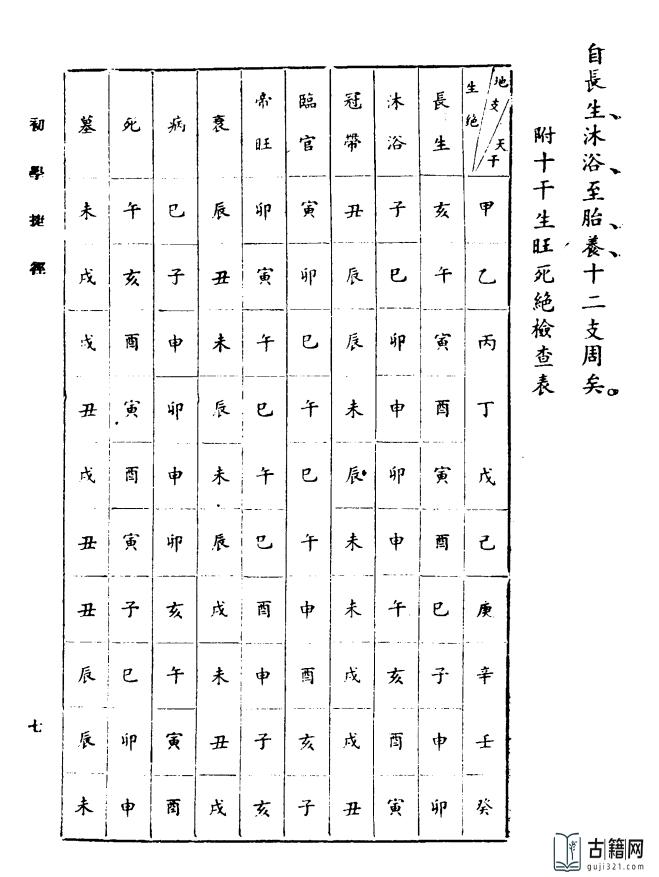 自長生、沐浴、至胎、養、十二支周矣。
附十干生旺死絕檢查表
地支 天干 生絕 甲 乙 丙 丁 戊 己 庚 辛 壬 癸
長生 亥 午 寅 酉 寅 酉 巳 子 申 卯
沐浴 子 巳 卯 申 卯 申 午 亥 酉 寅
冠帶 丑 辰 辰 未 辰 未 未 戌 戌 丑
臨官 寅 卯 巳 午 巳 午 申 酉 亥 子
帝旺 卯 寅 午 巳 午 巳 酉 申 子 亥
衰 辰 丑 未 辰 未 辰 戌 未 丑 戌
病 巳 子 申 卯 申 卯 亥 午 寅 酉
死 午 亥 酉 寅 酉 寅 子 巳 卯 申
墓 未 戌 戌 丑 戌 丑 丑 辰 辰 未
初學捷徑
七
古籍网
guji321.com